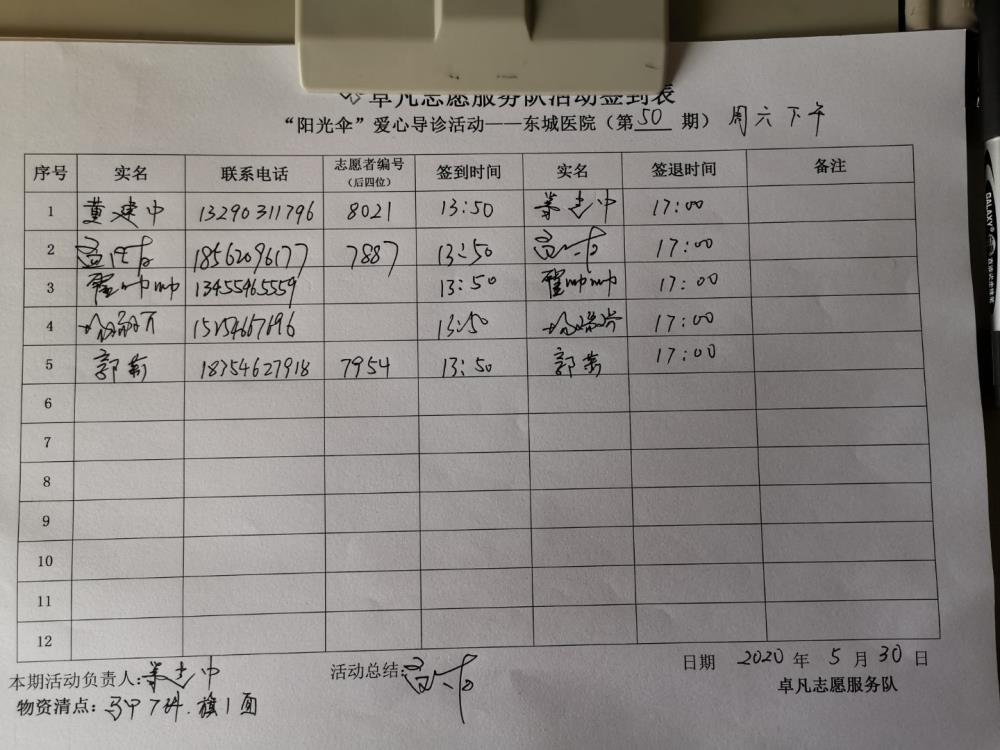 卓凡志愿服务队活动签到表
“阳光伞”爱心导诊活动——东城医院（第 50 期） 周六下午
序号 实名 联系电话 志愿者编号（后四位） 签到时间 实名 签退时间 备注
1 黄建中 13290311796 8021 13:50 黄建中 17:00
2 18562096177 7887 13:50 17:00
3 翟帅帅 13455465559 13:50 翟帅帅 17:00
4 15154667696 13:50 17:00
5 郭菊 18754627918 7954 13:50 郭菊 17:00
6
7
8
9
10
11
12
本期活动负责人：黄建中 活动总结： 日期 2020 年 5 月 30 日
物资清点：马甲7件.旗1面 卓凡志愿服务队
GALAXY